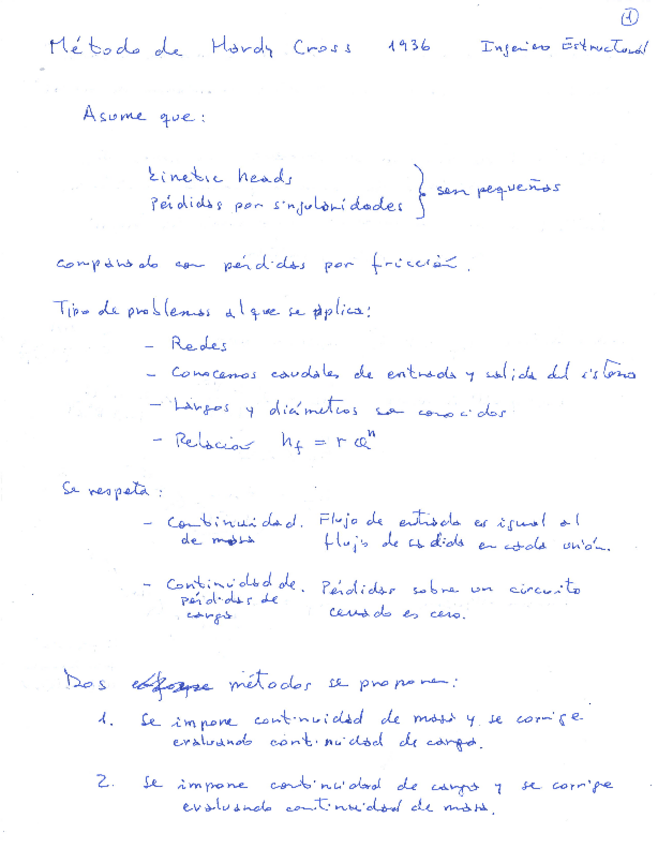 1
Método de Hardy Cross 1936 Ingeniero Estructural
Asume que:
kinetic heads
Pérdidas por singularidades } son pequeños
comparado con pérdidas por fricción.
Tipo de problemas al que se aplica:
- Redes
- Conocemos caudales de entrada y salida del sistema
- Largos y diámetros son conocidos
- Relación h_f = r Q^n
Se respeta:
- Continuidad. Flujo de entrada es igual al
de masa flujo de salida en cada unión.
- Continuidad de. Pérdidas sobre un circuito
pérdidas de cerrado es cero.
carga
Dos métodos se proponen:
1. Se impone continuidad de masa y se corrige
evaluando continuidad de carga.
2. Se impone continuidad de carga y se corrige
evaluando continuidad de masa.